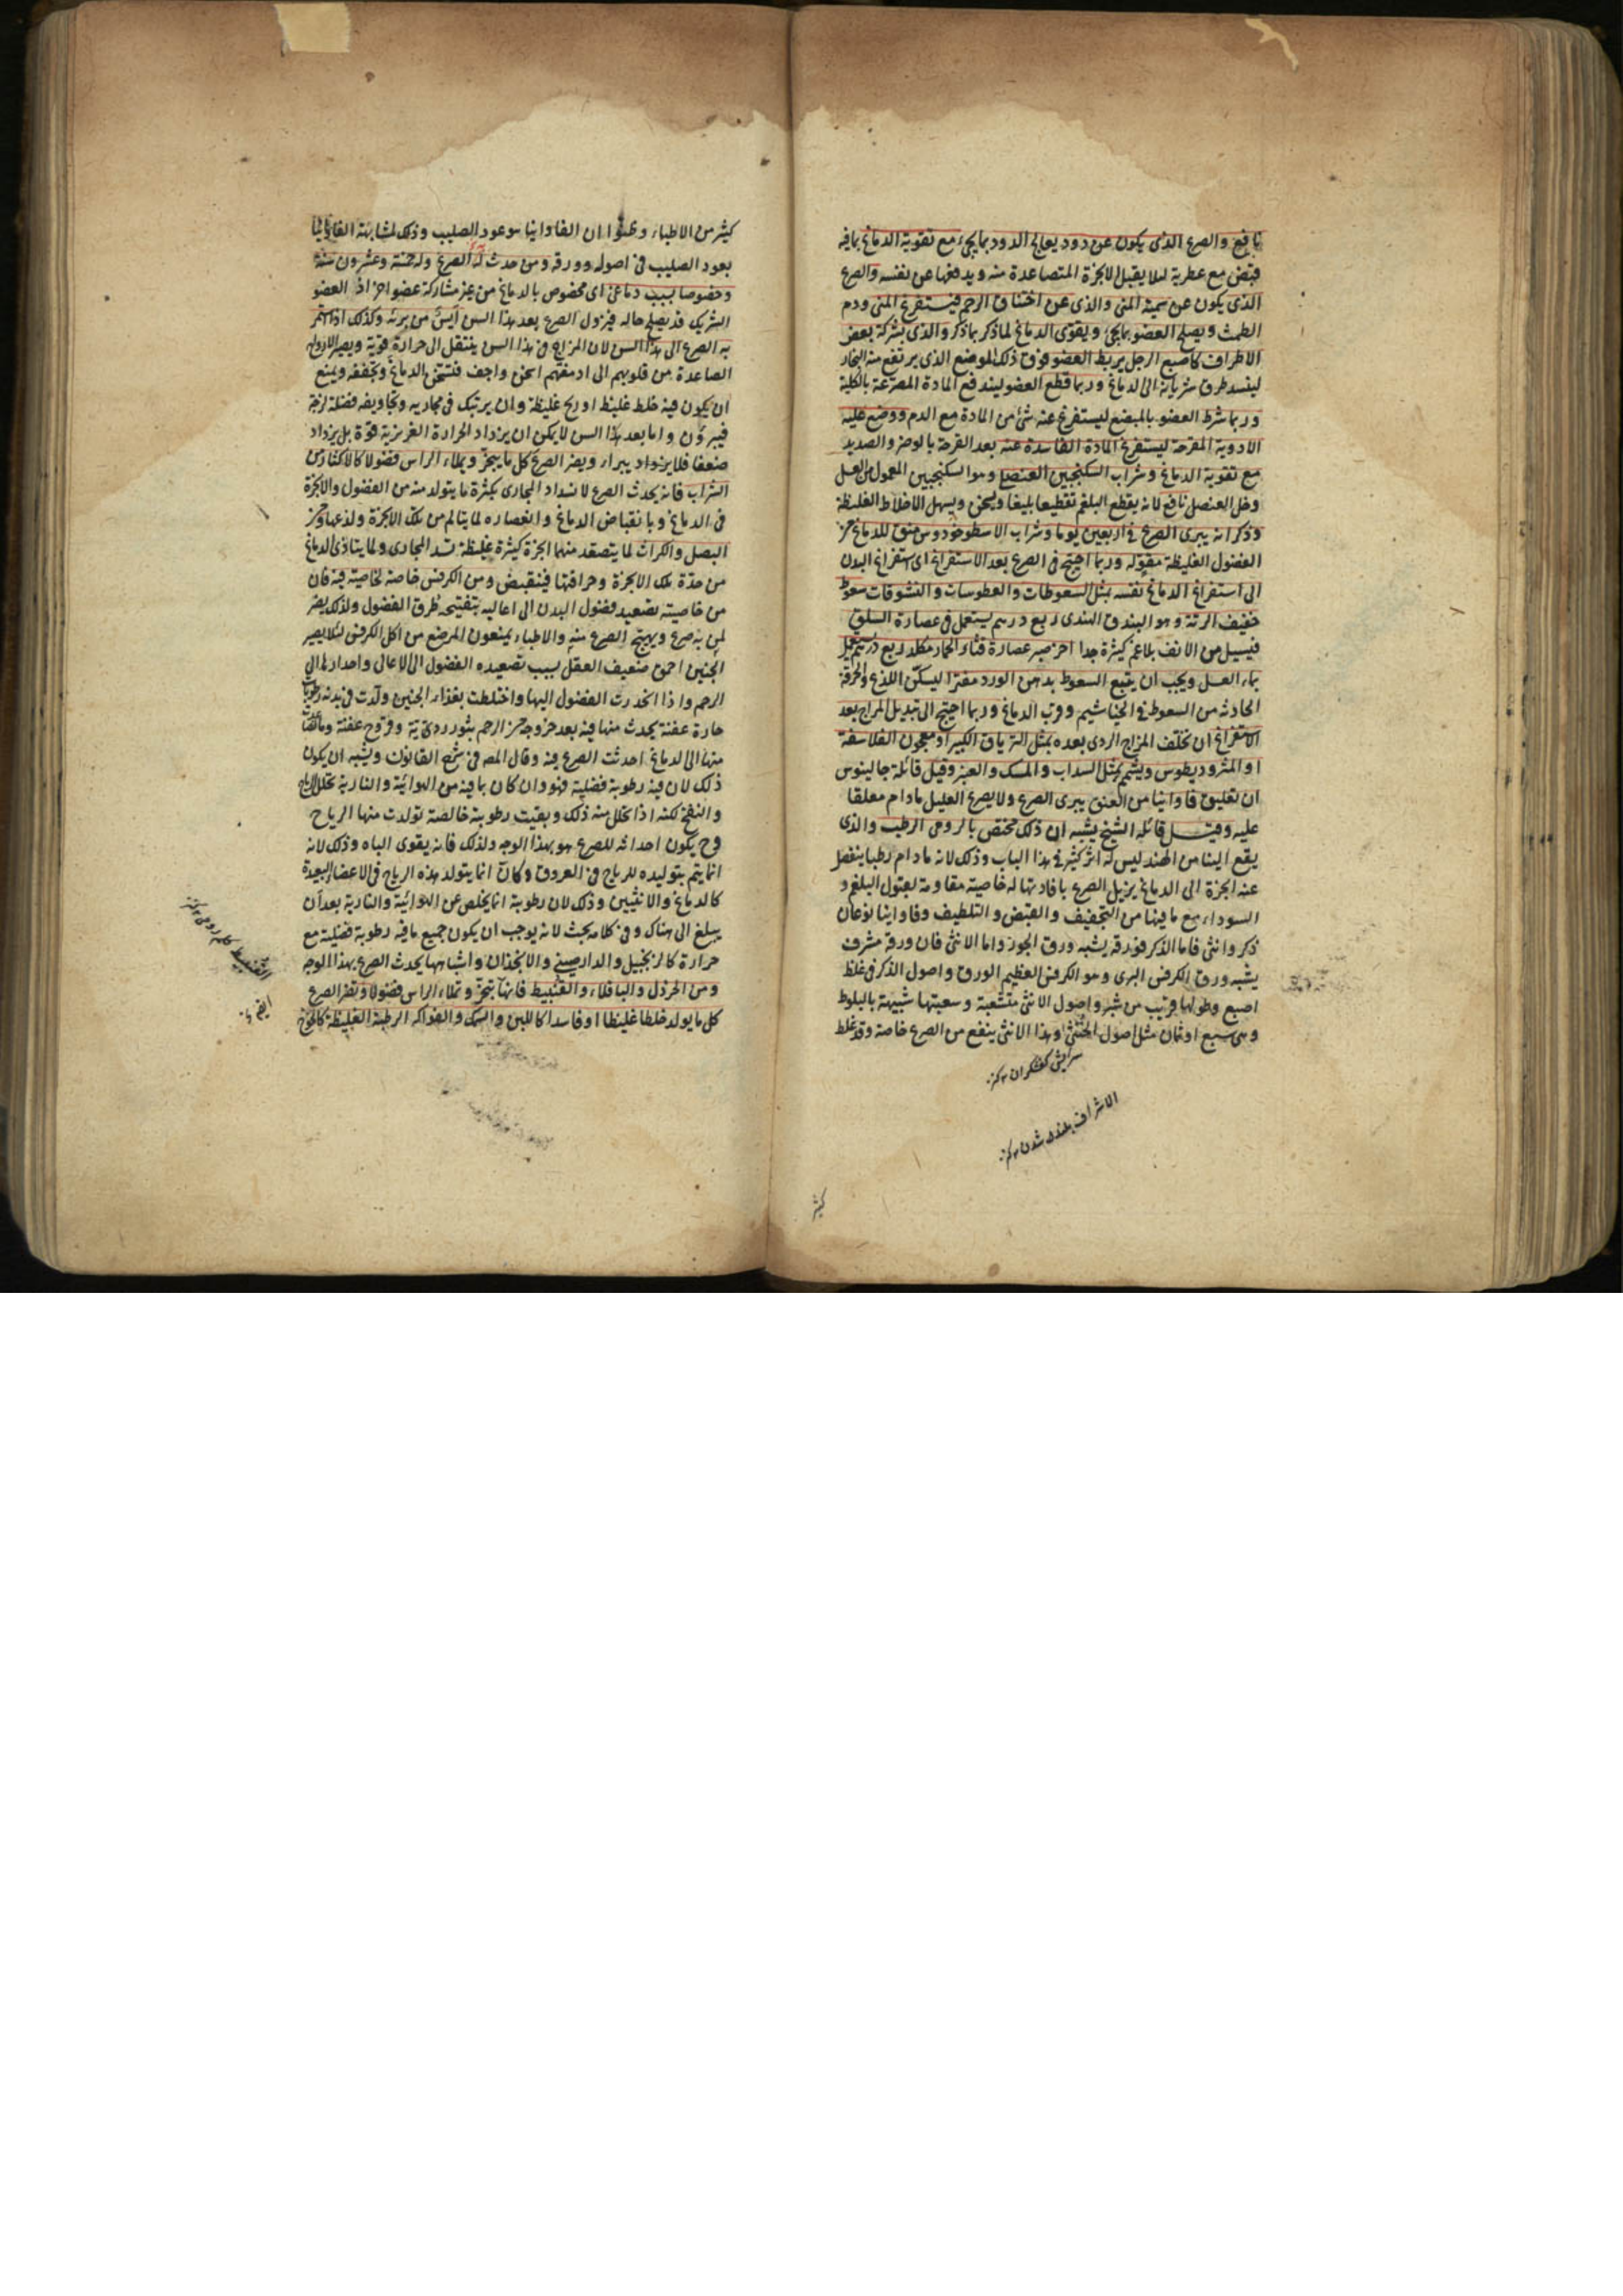 نافع والصرع الذى يكون عن دود يعالج الدود بما يجىء مع تقوية الدماغ بما فيه
قبض مع عطرية لئلا يقبل الابخرة المتصاعدة منه ويدفعها عن نفسه والصرع
الذى يكون عن سمية المنى والذى عن اختناق الرحم فيستفرغ المنى ودم
الطمث ويصلح العضو بما يجىء ويقوى الدماغ لما ذكر بما ذكر والذى بشركة بعض
الاطراف كاصبع الرجل يربط العضو فوق ذلك الموضع الذى يرتفع منه البخار
لينسد طرق سريانه الى الدماغ وربما قطع العضو ليندفع المادة المصرعة بالكلية
وربما شرط العضو بالمبضع ليستفرغ عنه شىء من المادة مع الدم ووضع عليه
الادوية المقرحة ليستفرغ المادة الفاسدة عنه بعد القرحة بالوضر والصديد
مع تقوية الدماغ وشراب السكنجبين العنصلى وهو السكنجبين المعمول من العسل
وخل العنصل نافع لانه يقطع البلغم تقطيعا بليغا ويسخن ويسهل الاخلاط الغليظة
وذكر انه يبرى الصرع فى اربعين يوما وشراب الاسطوخودوس منق للدماغ من
الفضول الغليظة مقو له وربما احتيج فى الصرع بعد الاستفراغ اى استفراغ البدن
الى استفراغ الدماغ نفسه بمثل السعوطات والعطوسات والنشوقات سعوط
خفيف الرتة وهو البندق الهندى ربع درهم يستعمل فى عصارة السلق
فيسيل من الانف بلاغم كثيرة جدا اخر صبر عصارة قثاء الحمار من كل ربع درهم يستعمل
بماء العسل ويجب ان يتبع السعوط بدهن الورد مفترا ليسكن اللذع والحرقة
الحادثة من السعوط فى الخياشيم وقرب الدماغ وربما احتيج الى تبديل المزاج بعد
الاستفراغ ان تخلف المزاج الردى بعده بمثل الترياق الكبير او معجون الفلاسفة
او المثروديطوس ويشم بمثل السداب والمسك والعنبر وقيل قائله جالينوس
ان تعليق فاوانيا من العنق يبرى الصرع ولا يصرع العليل ما دام معلقا
عليه وقيل قائله الشيخ يشبه ان ذلك مختص بالرومى الرطب والذى
يقع الينا من الهند ليس له اثر كثير فى هذا الباب وذلك لانه ما دام رطبا ينفصل
عنه ابخرة الى الدماغ يزيل الصرع بافادتها له خاصية مقاومة لقبول البلغم و
السوداء مع ما فيها من التجفيف والقبض والتلطيف وفاوانيا نوعان
ذكر وانثى فاما الذكر فورقه يشبه ورق الجوز واما الانثى فان ورقه مشرف
يشبه ورق الكرفس البرى وهو الكرفس العظيم الورق واصول الذكر فى غلظ
اصبع وطولها قريب من شبر واصول الانثى متشعبة وشعبتها شبيهة بالبلوط
وهى سبع او ثمان مثل اصول الخنثى وهذا الانثى ينفع من الصرع خاصة وقد غلط
سريش كفشگران كنز
الاشراف بلند شدن كنز
كثير
كثير من الاطباء وظنوا ان الفاوانيا هو عود الصليب وذلك لمشابهة الفاوانيا
بعود الصليب فى اصوله وورقه ومن حدث له الصرع وله خمسة وعشرون سنة
وخصوصا بسبب دماغى اى مخصوص بالدماغ من غير مشاركة عضو اخر اذ العضو
الشريك قد يصلح حاله فيزول الصرع بعد هذا السن ايس من برئه وكذلك اذا استمر
به الصرع الى هذا السن لان المزاج فى هذا السن ينتقل الى حرارة قوية ويصير الارواح
الصاعدة من قلوبهم الى ادمغتهم اسخن واجف فتسخن الدماغ وتجففه ويمنع
ان يكون فيه خلط غليظ او ريح غليظة وان يرتبك فى مجاريه وتجاويفه فضلة لزجة
فيبرؤن واما بعد هذا السن لا يمكن ان يزداد الحرارة الغريزية قوة بل يزداد
ضعفا فلا يزداد يبراء ويضر الصرع كل ما يبخر ويملاء الراس فضولا كالاكثار من
الشراب فانه يحدث الصرع لانسداد المجارى بكثرة ما يتولد منه من الفضول والابخرة
فى الدماغ وبانقباض الدماغ وانعصاره لما يتالم من تلك الابخرة ولذعها ومن
البصل والكراث لما يتصعد منهما ابخرة كثيرة غليظة تسد المجارى ولما يتاذى الدماغ
من حدة تلك الابخرة وحرافتها فينقبض ومن الكرفس خاصة لخاصية فيه فان
من خاصيته تصعيد فضول البدن الى اعاليه بتفتيحه طرق الفضول ولذلك يضر
لمن به صرع ويهيج الصرع منه والاطباء يمنعون المرضع من اكل الكرفس لئلا يصير
الجنين احمق ضعيف العقل بسبب تصعيده الفضول الى الاعالى واحدارها الى
الرحم واذا انحدرت الفضول اليها واختلطت بغذاء الجنين ولدت فى بدنه رطوبات
حادة عفنة يحدث منها فيه بعد خروجه من الرحم بثور ردية وقروح عفنة وما تصاعد
منها الى الدماغ احدثت الصرع فيه وقال المص فى شرح القانون ويشبه ان يكون
ذلك لان فيه رطوبة فضلية فهو وان كان بما فيه من الهوائية والنارية تحلل الرياح
والنفخ لكنه اذا تحلل منه ذلك وبقيت رطوبة خالصة تولدت منها الرياح
وح يكون احداثه للصرع هو بهذا الوجه ولذلك فانه يقوى الباه وذلك لانه
انما يتم بتوليده للرياح فى العروق وكان انما يتولد هذه الرياح فى الاعضاء البعيدة
كالدماغ والانثيين وذلك لان رطوبة انما يخلص عن الهوائية والنارية بعد ان
يبلغ الى هناك وفى كلامه بحث لانه يوجب ان يكون جميع ما فيه رطوبة فضلية مع
حرارة كالزنجبيل والدارصينى والانجذان واشباهها يحدث الصرع بهذا الوجه
ومن الخردل والباقلاء والقنبيط فانها تبخر وتملاء الراس فضولا وتضر الصرع
كل ما يولد خلطا غليظا او فاسدا كاللبن والسمك والفواكه الرطبة الغليظة كالخوخ
القنبيط كلم رومى كنز